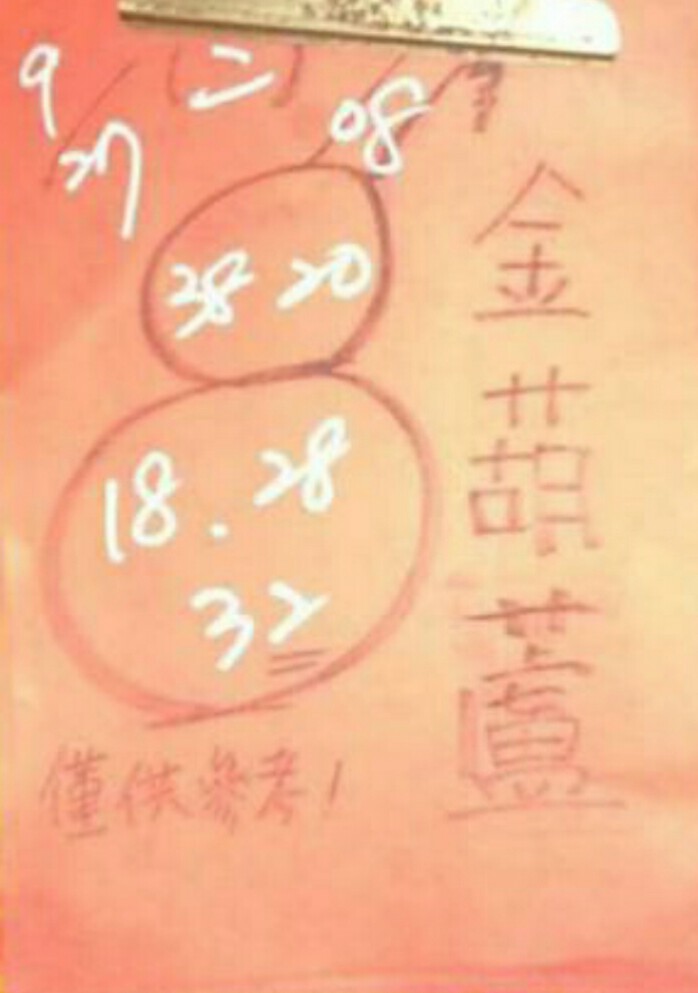 9/27 (二)
08
38 20
18.28
32
金葫蘆
僅供參考!